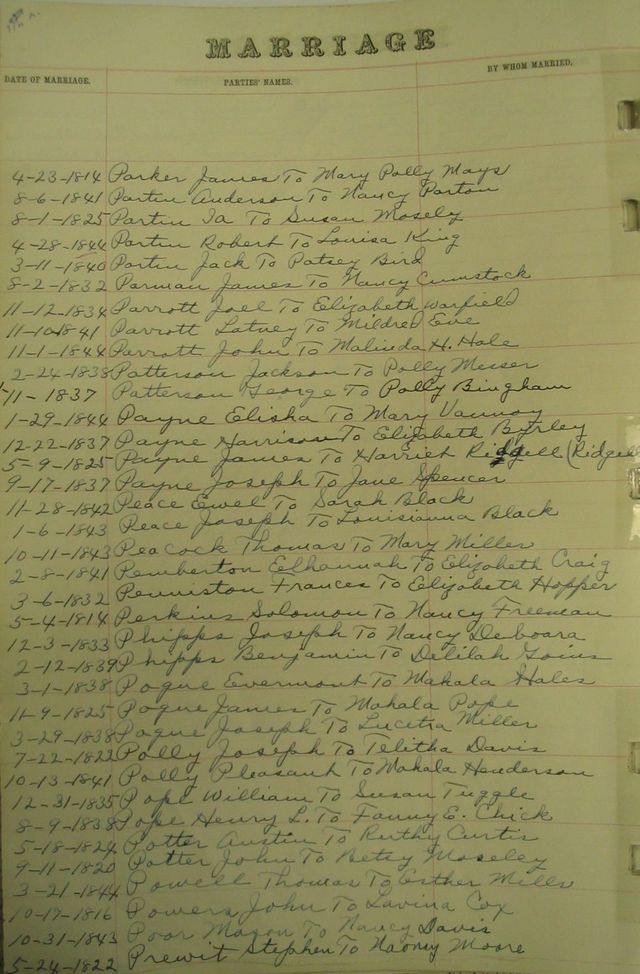 MARRIAGE
DATE OF MARRIAGE. PARTIES' NAMES. BY WHOM MARRIED.
4-23-1814 Parker James To Mary Polly Mays
8-6-1841 Partin Anderson To Nancy Parton
8-1-1825 Partin Ia To Susan Mosely
4-28-1844 Partin Robert To Louisa King
3-11-1840 Partin Jack To Patsey Bird
8-2-1832 Parman James To Nancy Cumstock
11-12-1834 Parrott Joel To Elizabeth Warfield
11-10-1841 Parrott Latney To Mildred Eve
11-1-1844 Parrott John To Malinda H. Hale
2-24-1838 Patterson Jackson To Polly Messer
-11-1837 Patterson George To Polly Bingham
1-29-1844 Payne Elisha To Mary Vannoy
12-22-1837 Payne Harrison To Elizabeth Byrley
5-9-1825 Payne James To Harriet Ridgell (Ridgell
9-17-1837 Payne Joseph To Jane Spencer
11-28-1842 Peace Ewel To Sarah Black
1-6-1843 Peace Joseph To Louisianna Black
10-11-1843 Peacock Thomas To Mary Miller
2-8-1841 Pemberton Elhannah To Elizabeth Craig
3-6-1832 Penniston Frances To Elizabeth Hopper
5-4-1814 Perkins Solomon To Nancy Freeman
12-3-1833 Phipps Joseph To Nancy Deboara
2-12-1839 Phipps Benjamin To Delilah Goins
3-1-1838 Pogue Evermont To Mahala Hales
11-9-1825 Pogue James To Mahala Pope
3-29-1838 Pogue Joseph To Lucetra Miller
7-22-1822 Polly Joseph To Telitha Davis
10-13-1841 Polly Pleasant To Mahala Henderson
12-31-1835 Pope William To Susan Tuggle
8-9-1838 Pope Henry L. To Fanny E. Chick
5-18-1824 Potter Austin To Ruthy Curtis
9-11-1820 Potter John To Betsy Moseley
3-21-1844 Powell Thomas To Esther Mills
10-17-1816 Powers John To Lavina Cox
10-31-1843 Poor Mason To Nancy Davis
5-24-1822 Prewit Stephen To Naomy Moore